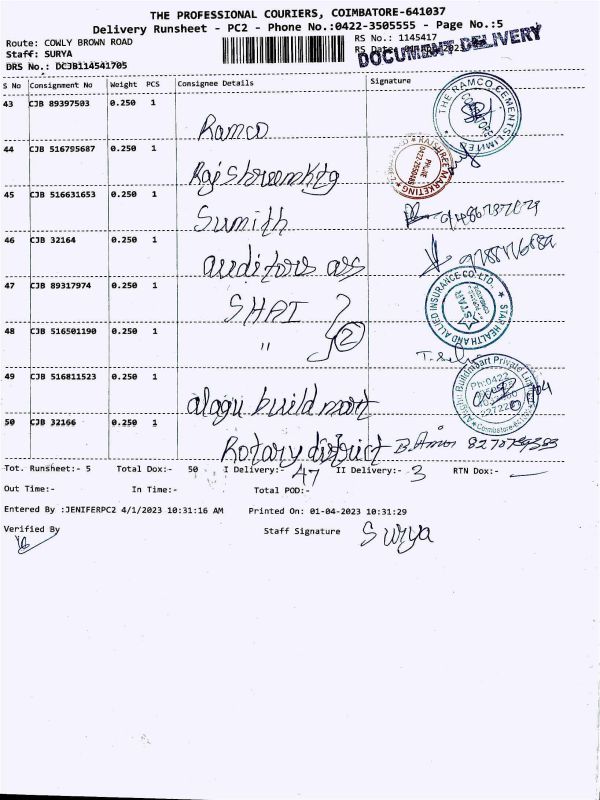 THE PROFESSIONAL COURIERS, COIMBATORE-641037
Delivery Runsheet - PC2 - Phone No.:0422-3505555 - Page No.:5
Route: COWLY BROWN ROAD
RS No.: 1145417
Staff: SURYA
RS Date:
DOCUMENT DELIVERY
DRS No.: DCJB114541705
S No Consignment No Weight PCS Consignee Details Signature
43 CJB 89397503 0.250 1
Ramco
THE RAMCO CEMENTS LIMITED
44 CJB 516795687 0.250 1
RAJSHREE MARKETING
45 CJB 516631653 0.250 1
Sumith
46 CJB 32164 0.250 1
auditors
47 CJB 89317974 0.250 1
SHAI
STAR HEALTH AND ALLIED INSURANCE CO. LTD.
STAR
48 CJB 516501190 0.250 1
" 2
49 CJB 516811523 0.250 1
alagu build mart
Buildmart Private Limited
Ph:0422
50 CJB 32166 0.250 1
Rotary district
Tot. Runsheet:- 5 Total Dox:- 50 I Delivery:- 47 II Delivery:- 3 RTN Dox:- —
Out Time:- In Time:- Total POD:-
Entered By :JENIFERPC2 4/1/2023 10:31:16 AM Printed On: 01-04-2023 10:31:29
Verified By Staff Signature Surya